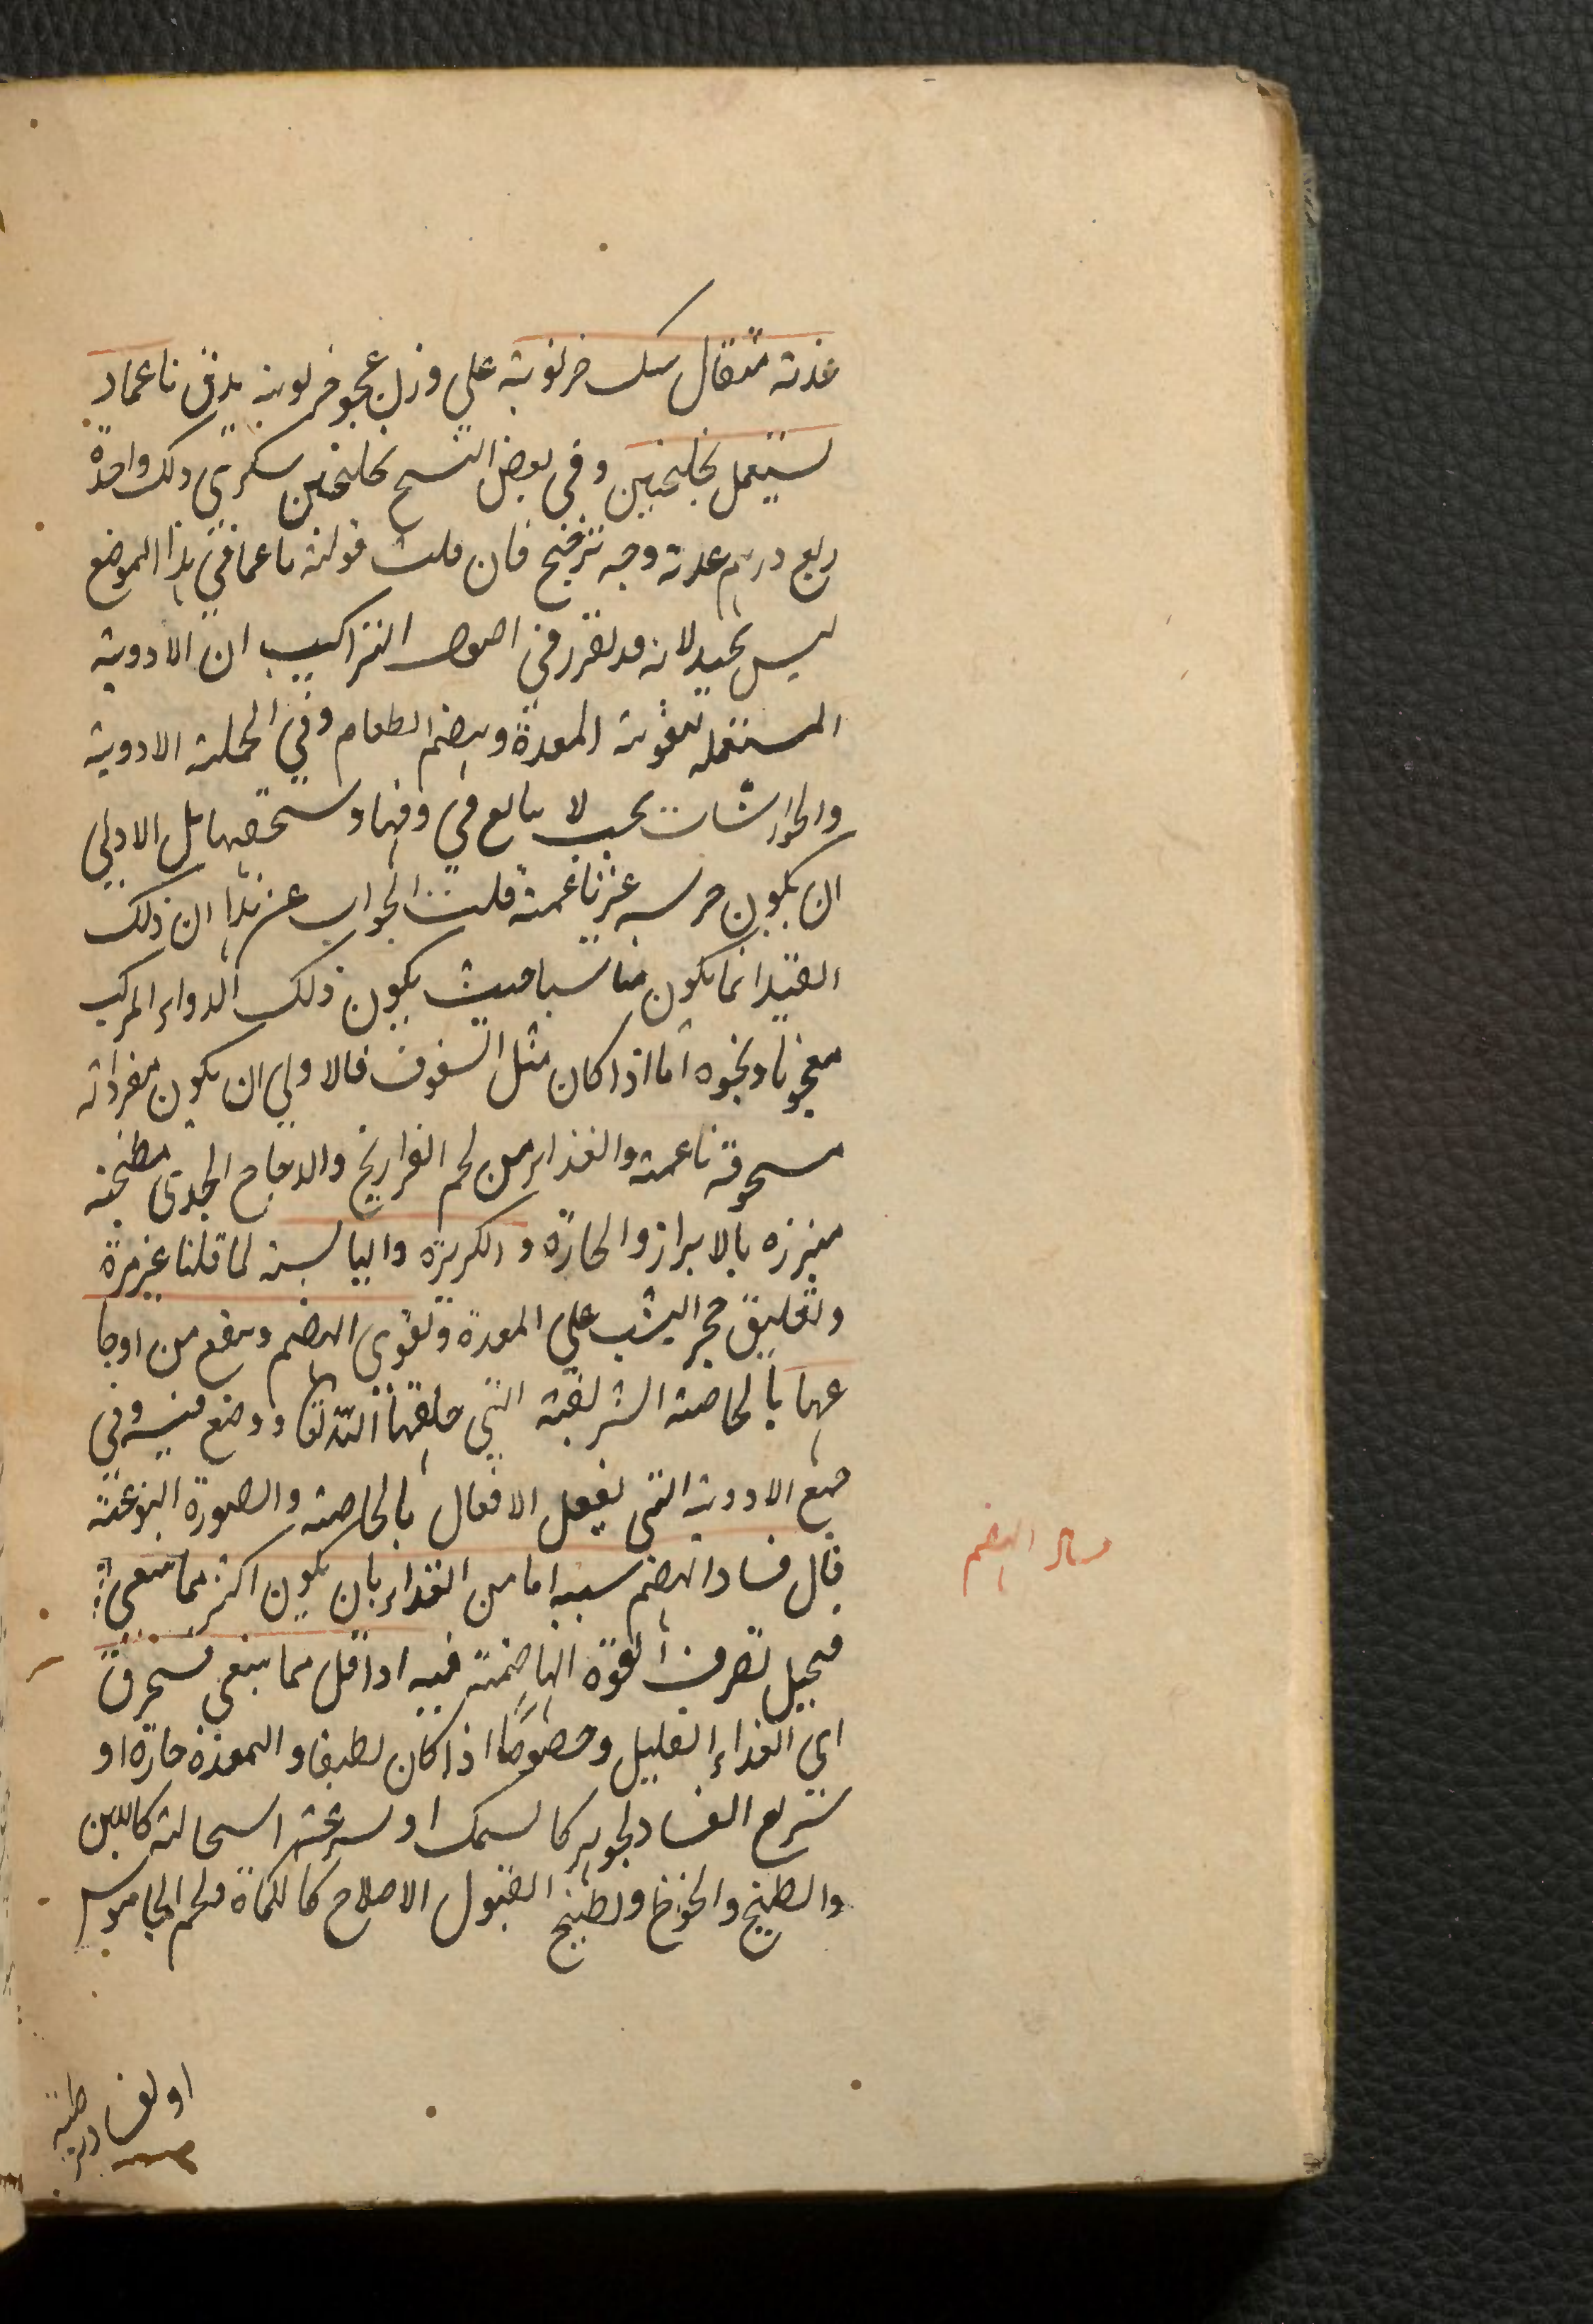 عذته مثقال سك خرنوبة علي وزن عجو خرنوبة يدق ناعما و
يستعمل بجلنجبين وفي بعض النسخ بجلنجبين سكري ولك واحدة
ربع درهم عدته وجه ترجيح فان قلت قوله ناعما في هذا الموضع
ليس بجيد لانه قد تقرر في اصول التراكيب ان الادوية
المستعمله لتقوية المعدة وهضم الطعام وفي الجملة الادوية
والجوارشات يجب لا يبالغ في دقها و سحقها بل الاولي
ان يكون جريسه غير ناعمة قلت الجواب عن هذا ان ذلك
القيد انما يكون مناسبا حيث يكون ذلك الدواء المركب
معجونا ونحوه اما اذا كان مثل السفوف فالاولي ان يكون مفرداته
مسحوقة ناعمة والغذاء من لحم الفراريج والدجاج الجدي مطنجنه
مبزره بالابراز والحارة و الكزبرة واليابسة لما قلنا غير مرة
وتعليق حجر اليشب علي المعدة وتقوي الهضم وينفع من اوجا
عها بالخاصة الشريفة التي خلقها الله تعا ووضع فيه وفي
جميع الادوية التي يفعل الافعال بالخاصة والصورة النوعية
قال فساد الهضم سببه اما من الغذاء بان يكون اكثر مما ينبغي
فيحيل تصرف القوة الهاضمة فيه او اقل مما ينبغي فيحترق
اي الغذاء القليل وخصوصا اذا كان لطيفا و المعدة حارة او
سريع الفساد لجوهره كالسمك او لسرعة استحالته كاللبن
والبطيخ والخوخ وبطيخ القبول الاصلاح كالكماة ولحم الجاموس
فساد الهضم
او لفساد